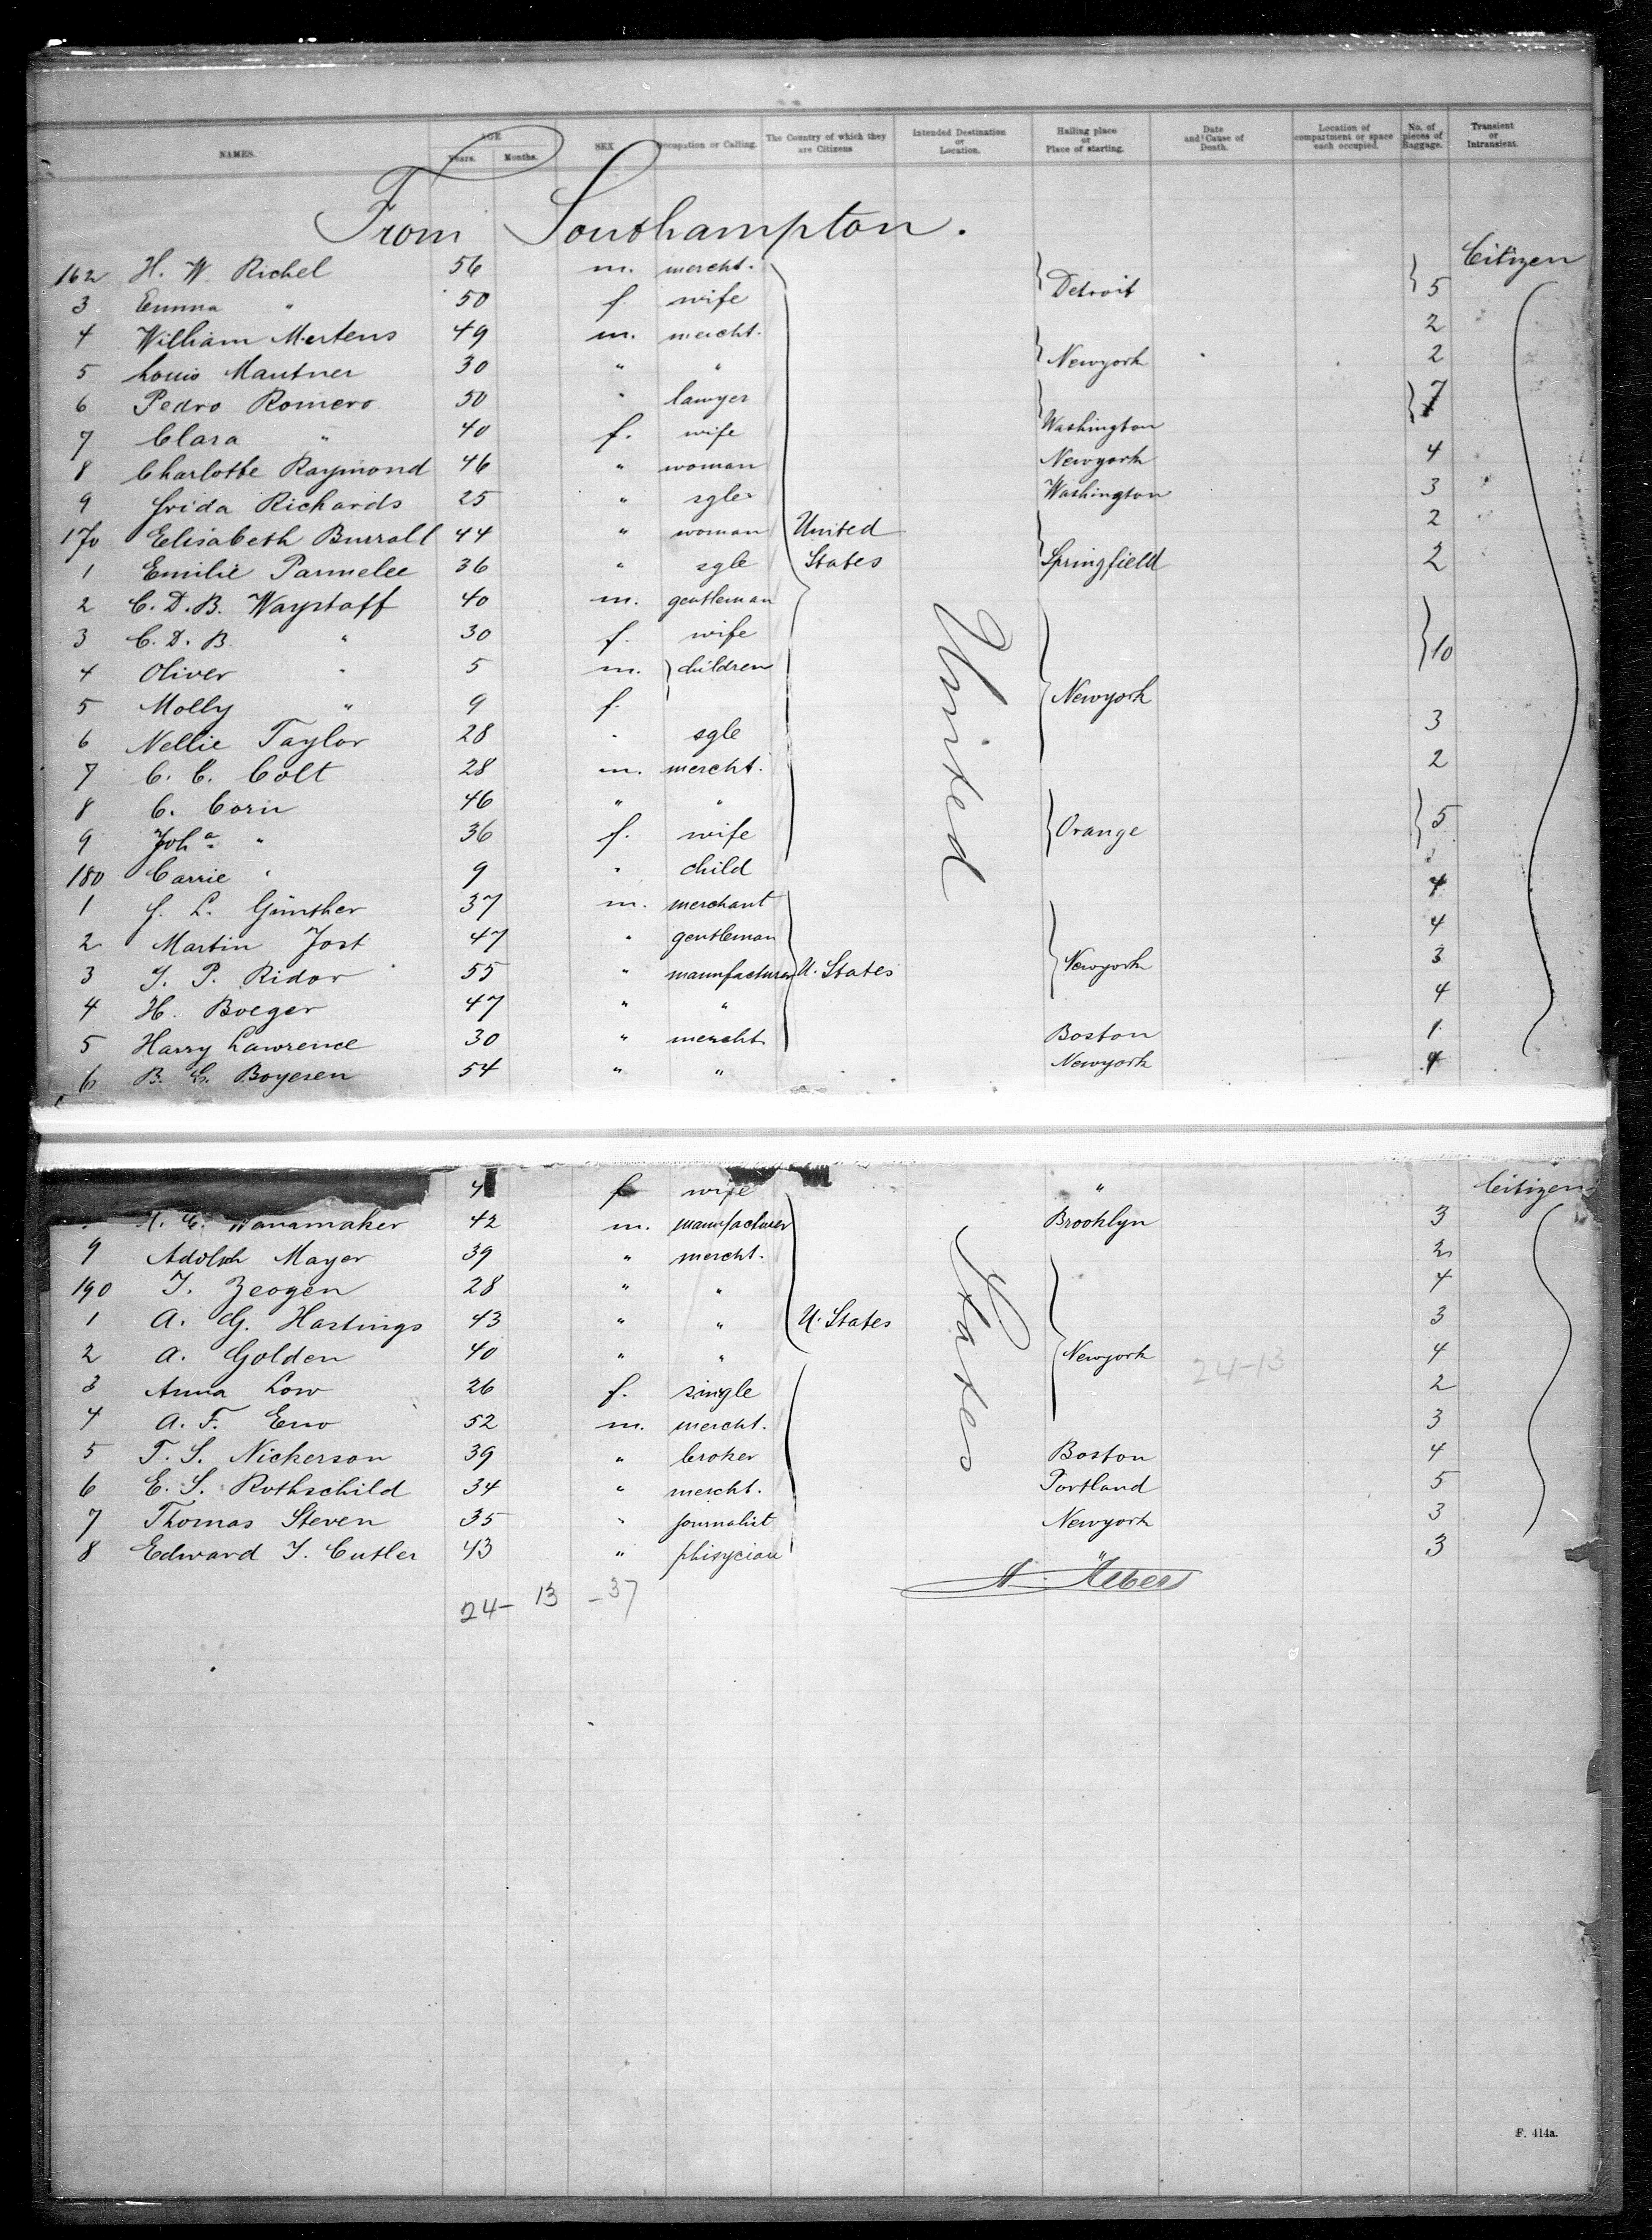 NAMES. AGE Years. Months. SEX Occupation or Calling. The Country of which they are Citizens Intended Destination or Location. Hailing place or Place of starting. Date and Cause of Death. Location of compartment or space each occupied. No. of pieces of Baggage. Transient or Intransient.
From Southampton.
Citizen
162 H. W. Richel 56 m. mercht.
3 Emma " 50 f. wife Detroit 5
4 William Mertens 49 m. mercht. 2
5 Louis Mautner 30 " " Newyork 2
6 Pedro Romero 50 " lawyer 7
7 Clara " 40 f. wife Washington
8 Charlotte Raymond 46 " woman Newyork 4
9 Frida Richards 25 " sgle Washington 3
170 Elisabeth Burrall 44 " woman United 2
1 Emilie Parmelee 36 " sgle States Springfield 2
2 C. D. B. Waystaff 40 m. gentleman
3 C. D. B. " 30 f. wife 10
4 Oliver " 5 m. children
5 Molly " 9 f. Newyork
6 Nellie Taylor 28 " sgle 3
7 C. C. Colt 28 m. mercht. 2
8 C. Corn 46 " "
9 Joha " 36 f. wife Orange 5
180 Carrie " 9 " child
1 J. L. Günther 37 m. merchant 4
2 Martin Jost 47 " gentleman 4
3 T. P. Ridor 55 " manufacturer U. States Newyork 3
4 H. Boeger 47 " " 4
5 Harry Lawrence 30 " mercht. Boston 1
6 B. G. Boyesen 54 " " Newyork 4
United
4 f wife " Citizen
Wanamaker 42 m. manufacturer Brooklyn 3
9 Adolph Mayer 39 " mercht. 2
190 T. Zeogen 28 " " 4
1 A. G. Hastings 43 " " U. States 3
2 A. Golden 40 " " Newyork 24-13 4
3 Anna Low 26 f. single 2
4 A. F. Eno 52 m. mercht. 3
5 T. S. Nickerson 39 " broker Boston 4
6 E. S. Rothschild 34 " mercht. Portland 5
7 Thomas Steven 35 " journalist Newyork 3
8 Edward T. Cutler 43 " phisycian " 3
States
24- 13 -37
F. 414a.